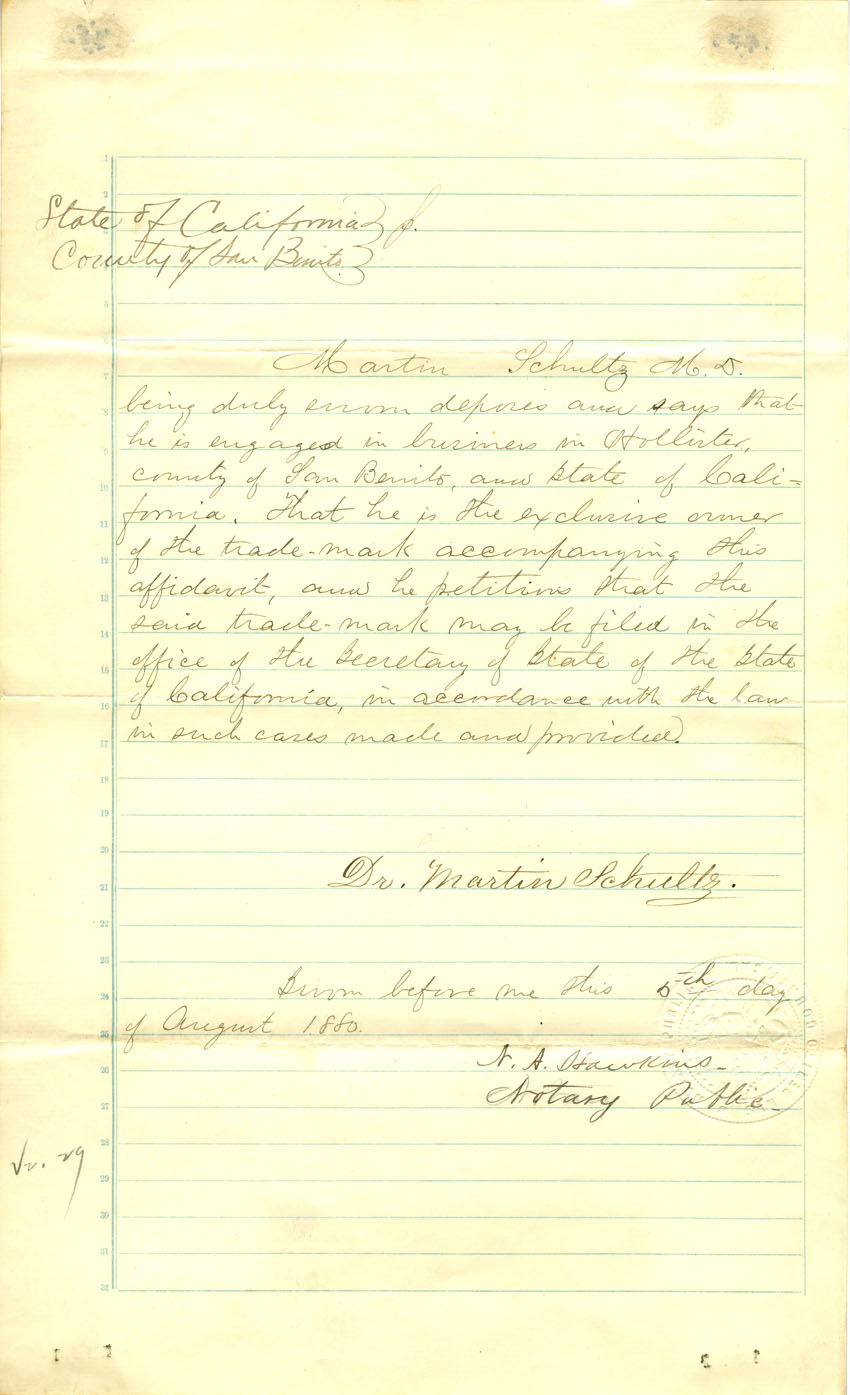 State of California }
County of San Benito. }
Martin Schultz M.D.
being duly sworn deposes and says that
he is engaged in business in Hollister,
county of San Benito, and State of Cali=
fornia. That he is the exclusive owner
of the trade-mark accompanying this
affidavit, and he petitions that the
said trade-mark may be filed in the
office of the Secretary of State of the State
of California, in accordance with the law
in such cases made and provided.
Dr. Martin Schultz.
Sworn before me this 5th day
of August 1880.
N. A. Hawkins
Notary Public
1
2
5
6
7
8
9
10
11
12
13
14
15
16
17
18
19
20
21
22
23
24
25
26
27
28
29
30
31
32